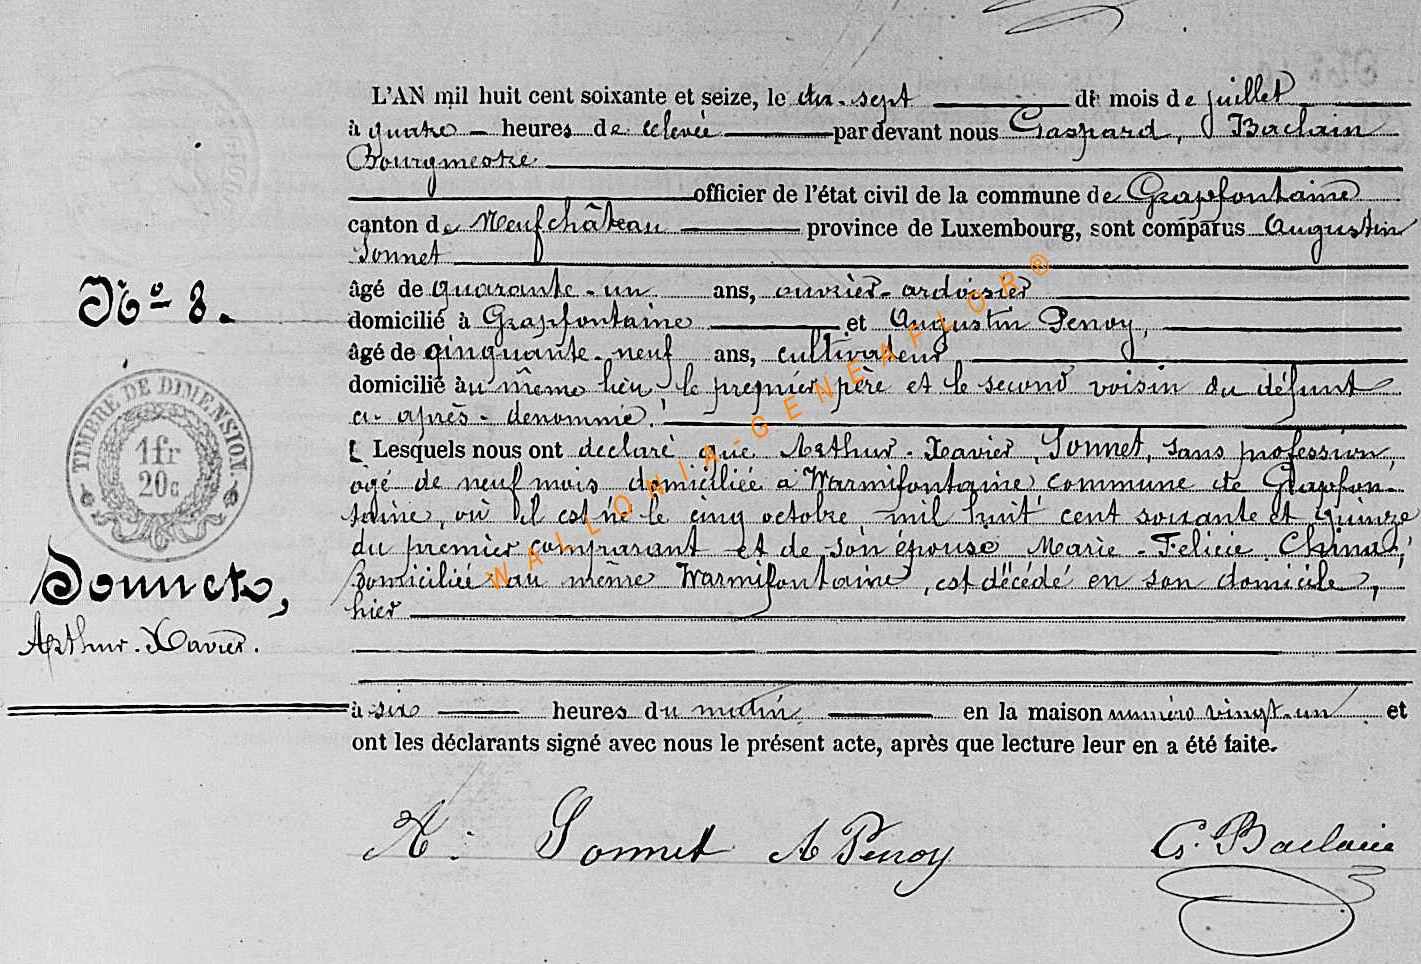 L'AN mil huit cent soixante et seize, le dix-sept du mois de juillet
à quatre heures de relevée par devant nous Gaspard, Baclain
Bourgmestre
officier de l'état civil de la commune de Grapfontaine
canton de Neufchâteau province de Luxembourg, sont comparus Augustin
Sonnet
âgé de quarante-un ans, ouvrier-ardoisier
domicilié à Grapfontaine et Augustin Penoy,
âgé de cinquante-neuf ans, cultivateur
domicilié au même lieu, le premier père et le second voisin du défunt
ci-après-denommé.
Lesquels nous ont declaré que Arthur-Xavier, Sonnet, sans profession,
agé de neuf mois domiciliée à Warmifontaine commune de Grapfon-
taine, où il est né le cinq octobre mil huit cent soixante et quinze
du premier comparant et de son épouse Marie-Felicie
Domiciliée au même Warmifontaine, est décédé en son domicile,
hier
à six heures du matin en la maison numéro vingt-un et
ont les déclarants signé avec nous le présent acte, après que lecture leur en a été faite.
A. Sonnet A Penoy G. Baclain
No 8.
TIMBRE DE DIMENSION
1fr
20c
Sonnet,
Arthur-Xavier.
WALLONIA-GENEAFLOR®